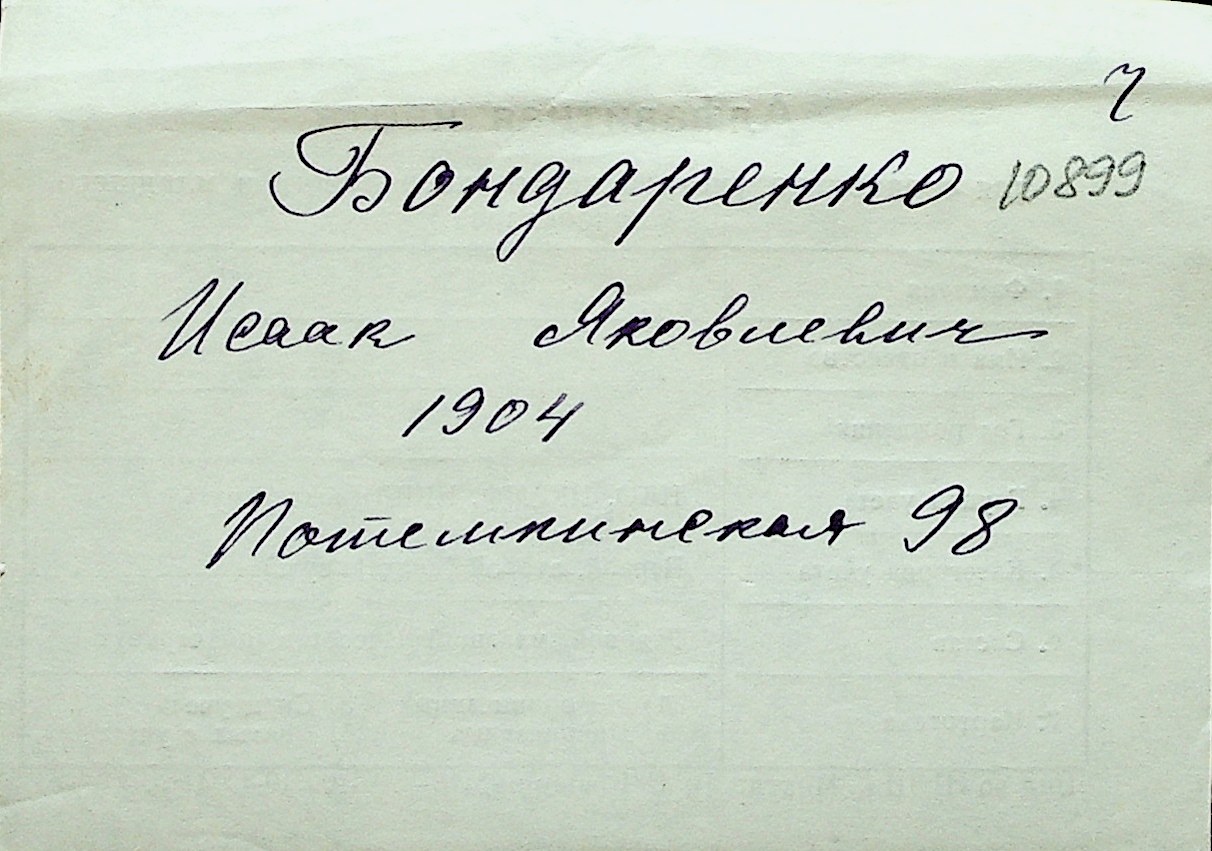 ч
Бондаренко 10899
Исаак Яковлевич
1904
Потемкинская 98